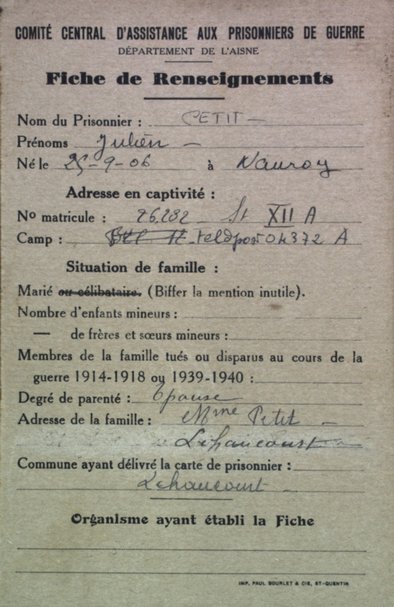 COMITÉ CENTRAL D'ASSISTANCE AUX PRISONNIERS DE GUERRE
DÉPARTEMENT DE L'AISNE
Fiche de Renseignements
Nom du Prisonnier : PETIT –
Prénoms Julien –
Né le 25-9-06 à Nauroy
Adresse en captivité :
No matricule : 26.282 – St XII A
Camp : Feldpost 04372 A
Situation de famille :
Marié ou célibataire. (Biffer la mention inutile).
Nombre d'enfants mineurs :
— de frères et sœurs mineurs :
Membres de la famille tués ou disparus au cours de la
guerre 1914-1918 ou 1939-1940 :
Degré de parenté : Epouse
Adresse de la famille : Mme Petit
Lehaucourt
Commune ayant délivré la carte de prisonnier :
Lehaucourt –
Organisme ayant établi la Fiche
IMP. PAUL BOURLET & CIE, ST-QUENTIN